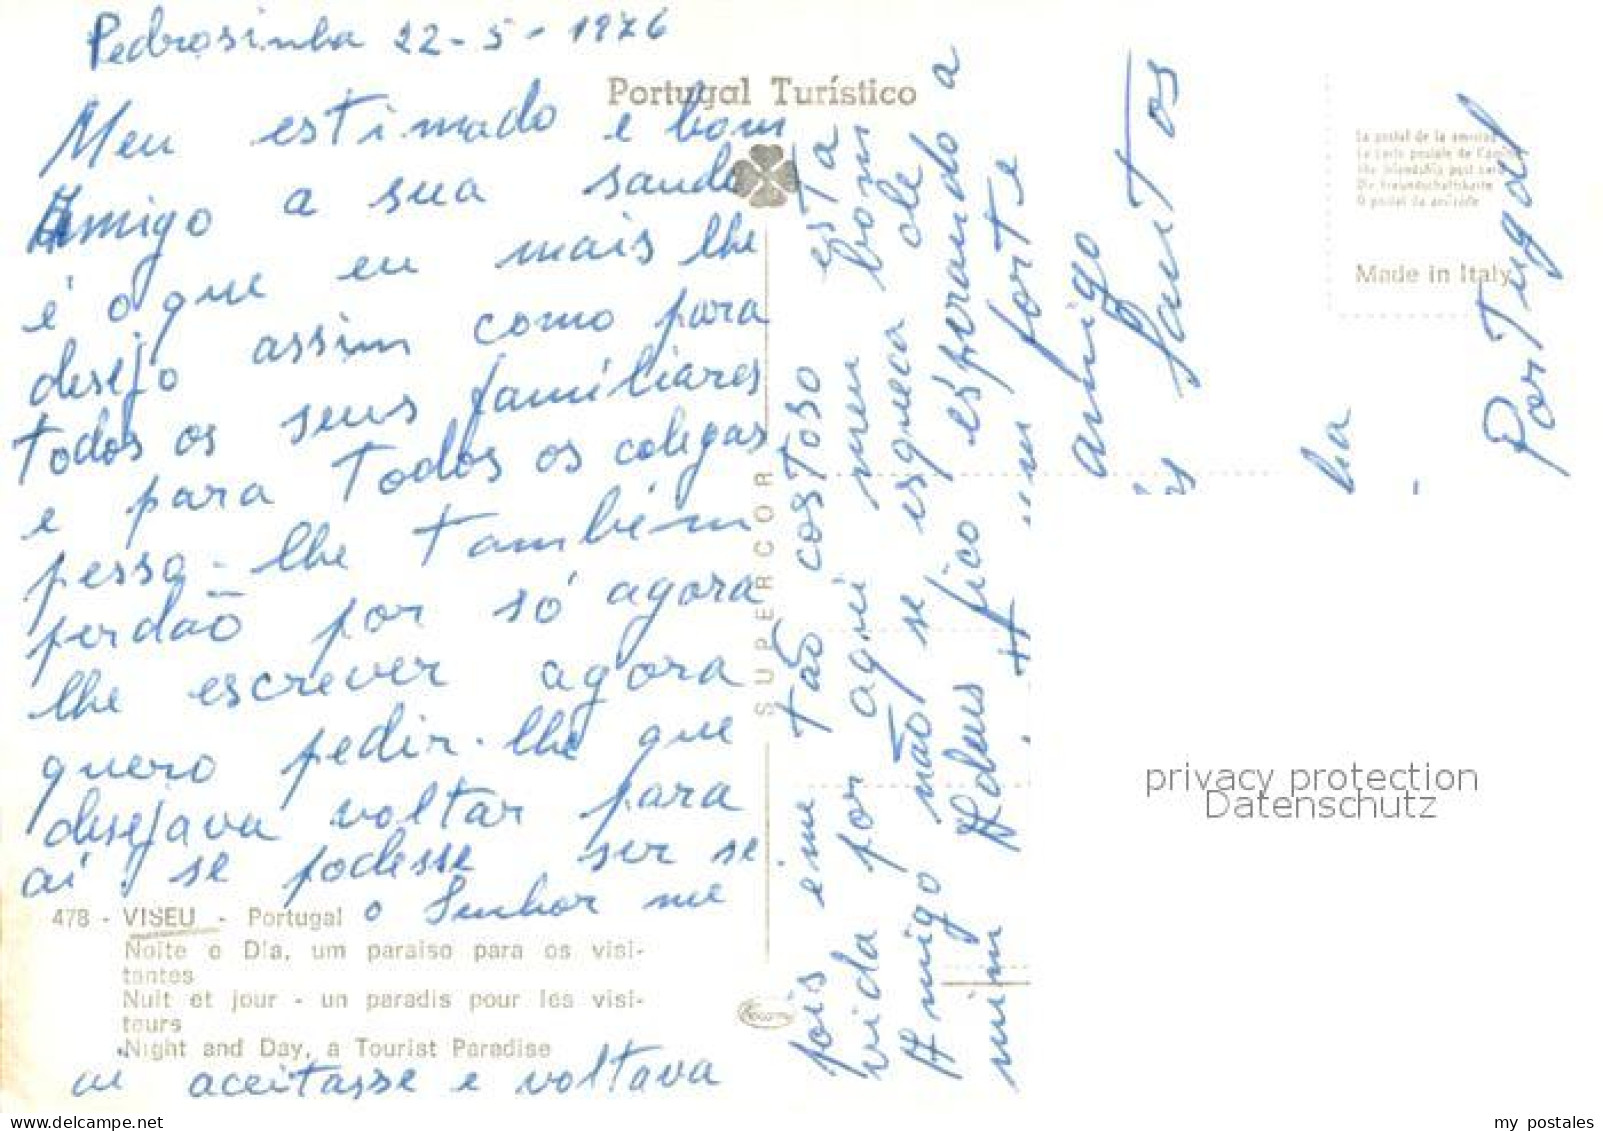 Pedrosinha 22-5-1976
Portugal Turístico
Meu estimado e bom
Amigo a sua saude
é o que eu mais lhe
desejo assim como para
todos os seus familiares
e para todos os colegas
pesso-lhe também
perdão por só agora
lhe escrever agora
quero pedir-lhe que
desejava voltar para
ai se podesse ser se
o Senhor me
478 - VISEU - Portugal
Noite e Dia, um paraiso para os visi-
tantes
Nuit et jour - un paradis pour les visi-
teurs
Night and Day, a Tourist Paradise
ai aceitasse e voltava
SUPERCOR
pois eme tão costoso esta
vida por aqui meu bom
Amigo não se esqueca de
mim Adeus fico esperando a
um forte
amigo
Santos
ha
Portugal
La postal de la amistad
La carte postale de l'amitié
The friendship post card
Die Freundschaftskarte
O postal da amizade
Made in Italy
privacy protection
Datenschutz
my postales